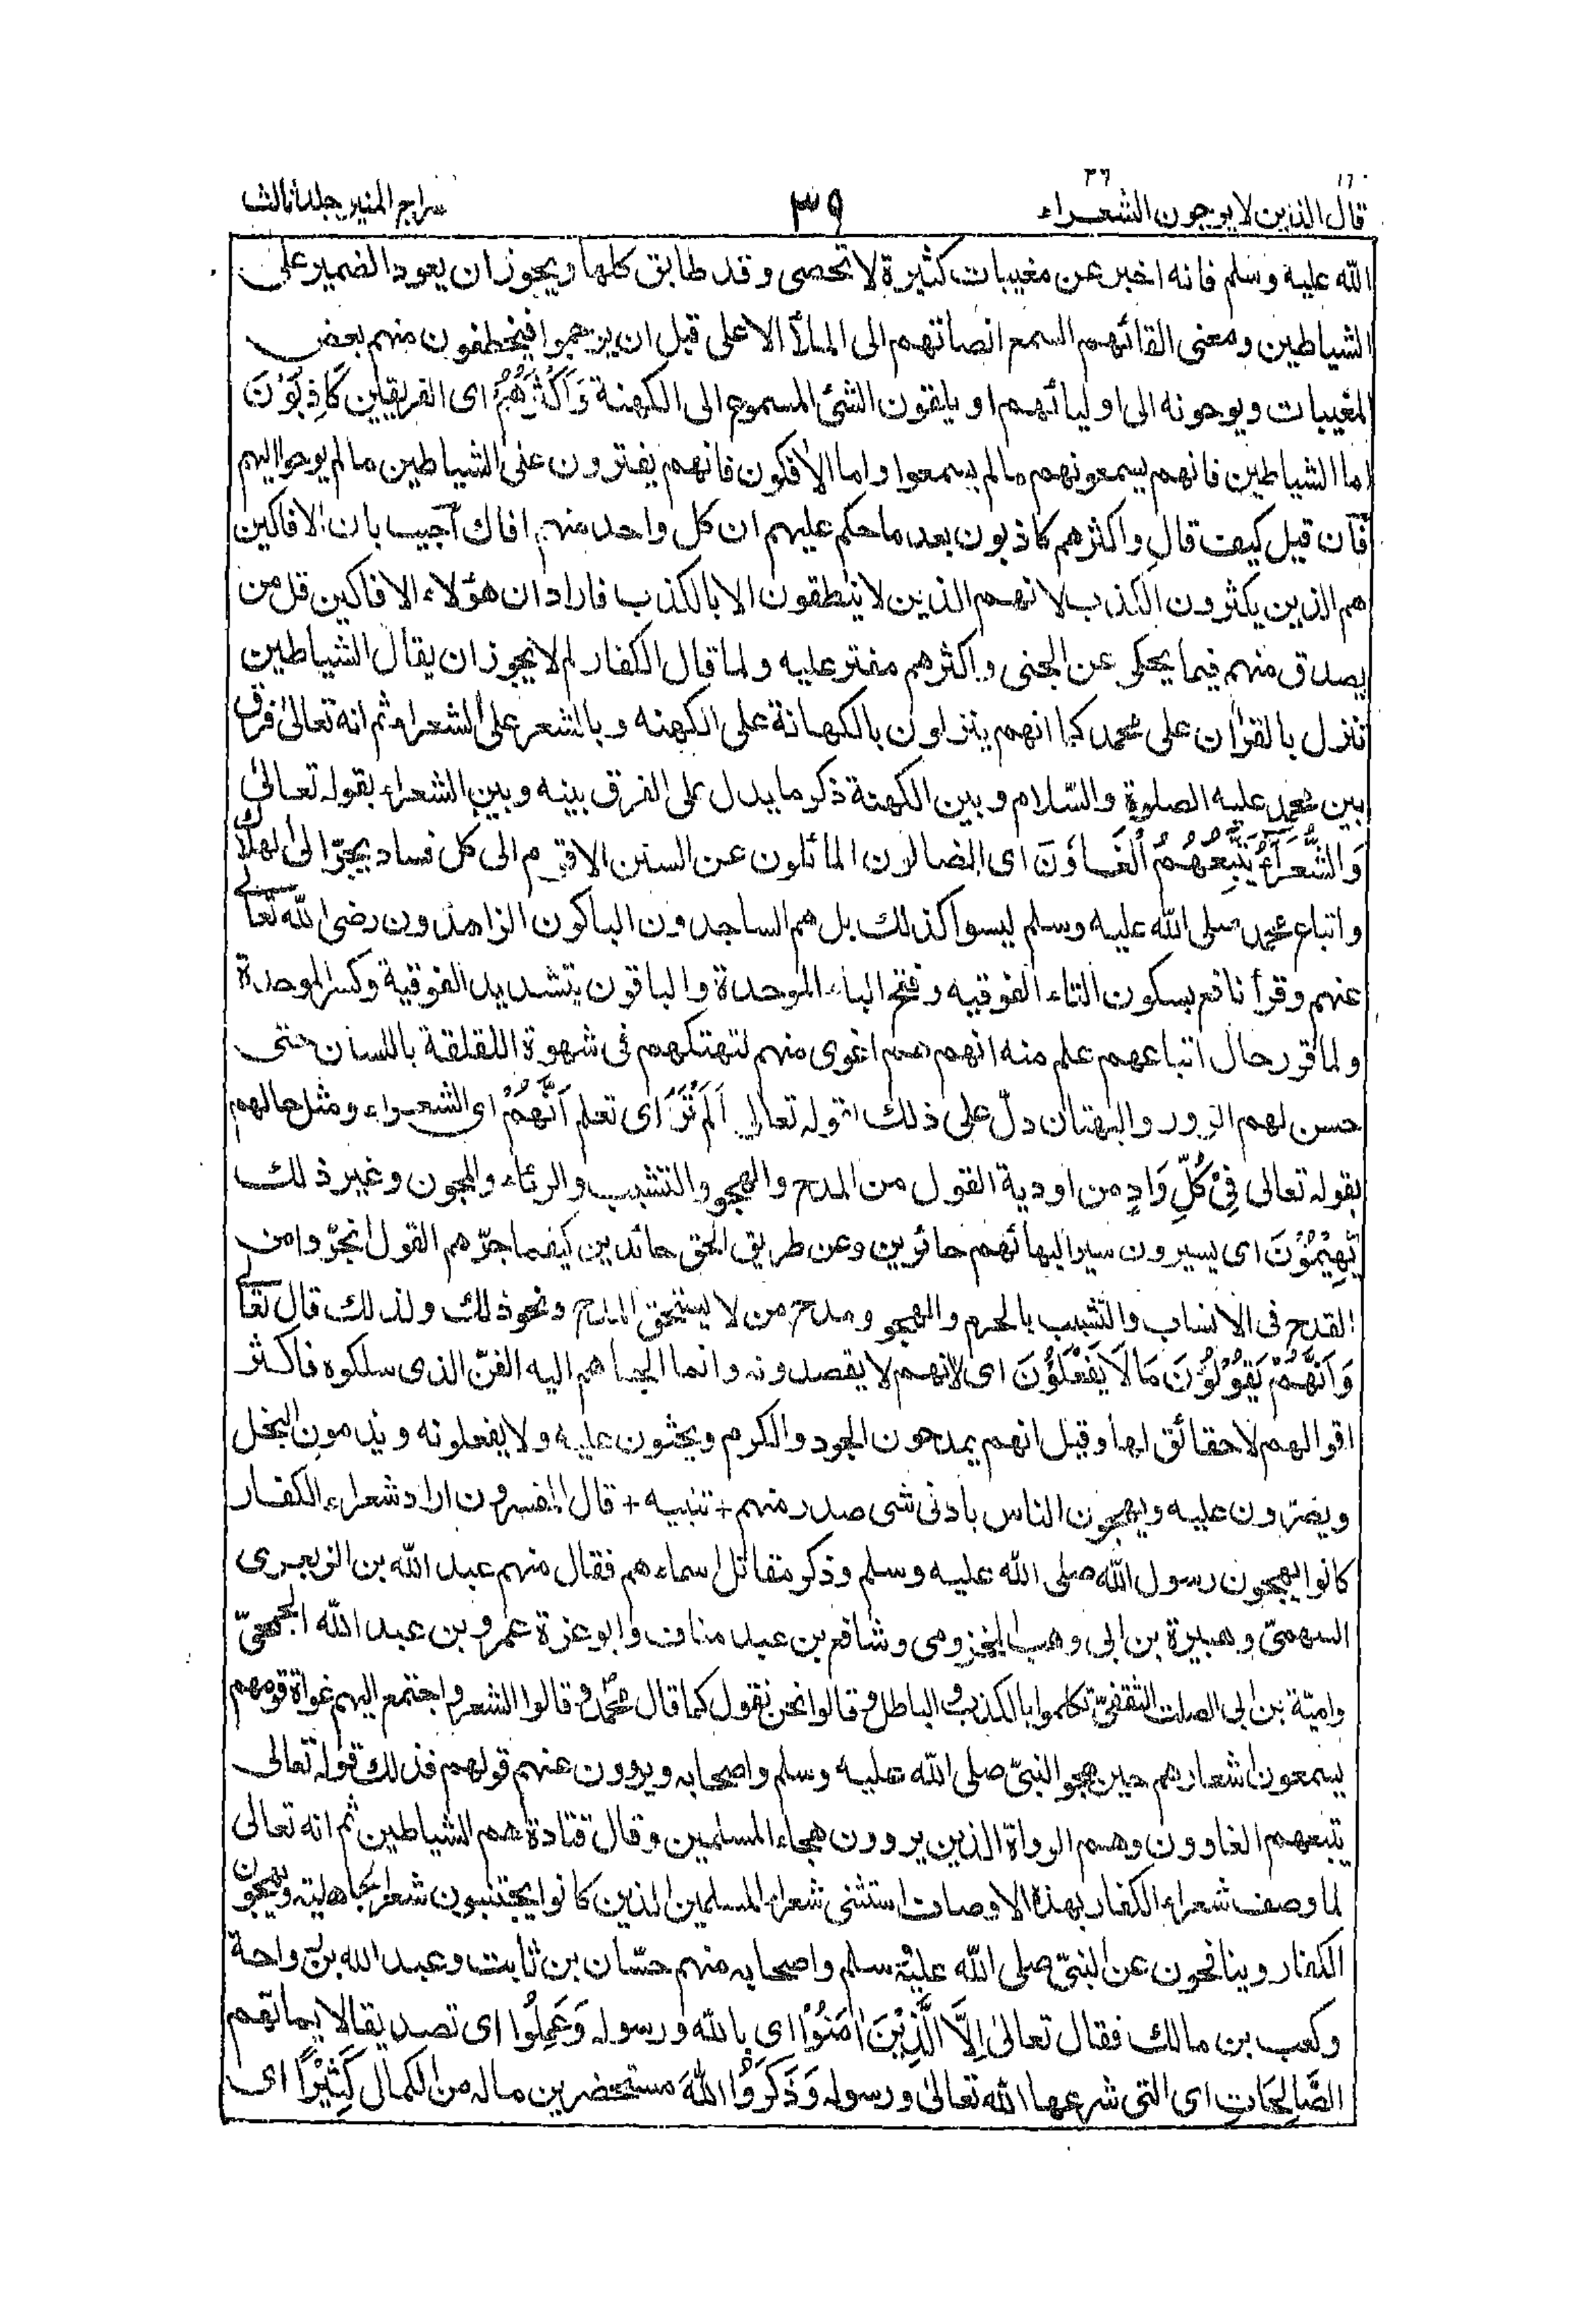 قال الذين لا يرجون الشعراء
٢٦
٣٩
سراج المنير جلد ثالث
الله عليه وسلم فانه اخبر عن مغيبات كثيرة لا تحصى وقد طابق كلها ويجوز ان يعود الضمير على
الشياطين ومعنى القائهم السمع انصاتهم الى الملأ الاعلى قبل ان يرجموا فيخطفون منهم بعض
المغيبات ويوحونه الى اوليائهم او يلقون الشئ المسموع الى الكهنة وَاَكْثَرُهُمْ اى الفريقين كَاذِبُوْنَ
اما الشياطين فانهم يسمعونهم مالم يسمعوا واما الأفكون فانهم يفترون على الشياطين مالم يوحوا اليهم
فآن قيل كيف قال واكثرهم كاذبون بعد ما حكم عليهم ان كل واحد منهم افاك آجيب بان الافاكين
هم الذين يكثرون الكذب لا نهم الذين لا ينطقون الا بالكذب فاراد ان هؤلاء الافاكين قل من
يصدق منهم فيما يحكى عن الجنى واكثرهم مفتر عليه ولما قال الكفار لم لا يجوز ان يقال الشياطين
تنزل بالقرأن على محمد كما انهم ينزلون بالكهانة على الكهنه وبالشعر على الشعراء ثم انه تعالىٰ فرق
بين محمد عليه الصلوة والسّلام وبين الكهنة ذكر ما يدل على الفرق بينه وبين الشعراء بقوله تعالىٰ
وَالشُّعَرَآءُ يَتَّبِعُهُمُ الْغَاوٗنَ اى الضالون المائلون عن السنن الاقوم الى كل فساد يجرّ الى الهلاك
واتباع محمد صلى الله عليه وسلم ليسوا كذلك بل هم الساجدون الباكون الزاهدون رضى الله تعالى
عنهم وقرأ نافع بسكون التاء الفوقيه وفتح الباء الموحدة والباقون بتشديد الفوقية وكسر الموحدة
ولما قرر حال اتباعهم علم منه انهم هم اغوى منهم لتهتكهم فى شهوة اللقلقة باللسان حتى
حسن لهم الزور والبهتان دلّ على ذلك بقوله تعالى اَلَمْ تَرَ اى تعلم اَنَّهُمْ اى الشعراء ومثل حالهم
بقوله تعالى فِىْ كُلِّ وَادٍ من اودية القول من المدح والهجو والتشبب والرثاء والمجون وغير ذلك
يَّهِيْمُوْنَ اى يسيرون سير البهائم حائرين وعن طريق الحق حائدين كيفما جرّهم القول انجرّوا من
القدح فى الانساب والتشبب بالحرم والهجو ومدح من لا يستحق المدح ونحو ذلك ولذلك قال تعالى
وَاَنَّهُمْ يَقُوْلُوْنَ مَا لَا يَفْعَلُوْنَ اى لانهم لا يقصدونه وانما الجأهم اليه الفنّ الذى سلكوه فاكثر
اقوالهم لا حقائق لها وقيل انهم يمدحون الجود والكرم ويحثون عليه ولا يفعلونه ويذمون البخل
ويصرون عليه ويهجون الناس بادنى شى صدر منهم + تنبيه + قال المفسرون اراد شعراء الكفار
كانوا يهجون رسول الله صلى الله عليه وسلم وذكر مقاتل اسماءهم فقال منهم عبد الله بن الزبعرى
السهمىّ وهبيرة بن ابى وهب المخزومى وشافع بن عبد مناف وابو عزة عمرو بن عبد الله الجمحىّ
واميّة بن ابى الصلت الثقفىّ تكلموا بالكذب والباطل وقالوا نحن نقول كما قال محمد وقالوا الشعر واجتمع اليهم غواة قومهم
يسمعون اشعارهم حين هجوا النبىّ صلى الله عليه وسلم واصحابه ويروون عنهم قولهم فذلك قوله تعالى
يتبعهم الغاوون وهم الرواة الذين يروون هجاء المسلمين وقال قتادة هم الشياطين ثم انه تعالى
لما وصف شعراء الكفار بهذه الاوصاف استثنى شعراء المسلمين الذين كانوا يجتنبون شعر الجاهلية ويهجون
الكفار وينافحون عن النبىّ صلى الله عليه وسلم واصحابه منهم حسّان بن ثابت وعبد الله بن رواحة
وكعب بن مالك فقال تعالىٰ اِلَّا الَّذِيْنَ اٰمَنُوْا اى بالله ورسوله وَعَمِلُوا اى تصديقا لايمانهم
الصَّالِحَاتِ اى التى شرعها الله تعالىٰ ورسوله وَذَكَرُوا اللهَ مستحضرين ماله من الكمال كَثِيْرًا اى